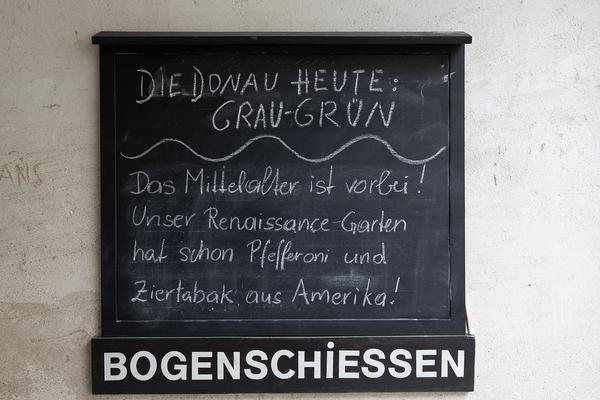 DIE DONAU HEUTE:
GRAU-GRÜN
Das Mittelalter ist vorbei!
Unser Renaissance-Garten
hat schon Pfefferoni und
Ziertabak aus Amerika!
BOGENSCHiESSEN